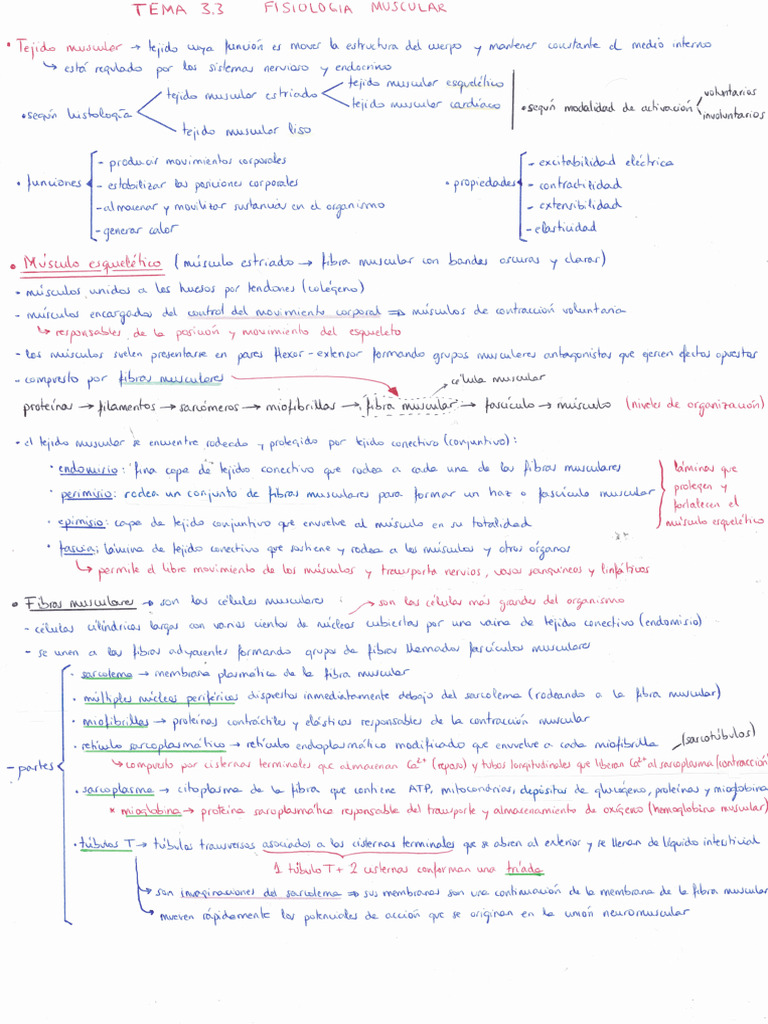 TEMA 3.3 FISIOLOGIA MUSCULAR
• Tejido muscular → tejido cuya función es mover la estructura del cuerpo y mantener constante el medio interno
↳ está regulado por los sistemas nervioso y endocrino
tejido muscular esquelético
tejido muscular estriado
tejido muscular cardíaco
• según histología
tejido muscular liso
• según modalidad de activación
voluntarios
involuntarios
• funciones
- producir movimientos corporales
- estabilizar las posiciones corporales
- almacenar y movilizar sustancias en el organismo
- generar calor
• propiedades
- excitabilidad eléctrica
- contractilidad
- extensibilidad
- elasticidad
• Músculo esquelético (músculo estriado → fibra muscular con bandas oscuras y claras)
- músculos unidos a los huesos por tendones (colágeno)
- músculos encargados del control del movimiento corporal ⇒ músculos de contracción voluntaria
↳ responsables de la posición y movimiento del esqueleto
- los músculos suelen presentarse en pares flexor-extensor formando grupos musculares antagonistas que generen efectos opuestos
- compuesto por fibras musculares
célula muscular
proteínas → filamentos → sarcómeros → miofibrillas → fibra muscular → fascículo → músculo (niveles de organización)
• el tejido muscular se encuentra rodeado y protegido por tejido conectivo (conjuntivo):
• endomisio: fina capa de tejido conectivo que rodea a cada una de las fibras musculares
• perimisio: rodea un conjunto de fibras musculares para formar un haz o fascículo muscular
• epimisio: capa de tejido conjuntivo que envuelve al músculo en su totalidad
• fascia: lámina de tejido conectivo que sostiene y rodea a los músculos y otros órganos
láminas que
protegen y
fortalecen el
músculo esquelético
↳ permite el libre movimiento de los músculos y transporta nervios, vasos sanguíneos y linfáticos
• Fibras musculares → son las células musculares : → son las células más grandes del organismo
- células cilíndricas largas con varios cientos de núcleos cubiertas por una vaina de tejido conectivo (endomisio)
- se unen a las fibras adyacentes formando grupos de fibras llamados fascículos musculares
- partes
• sarcolema → membrana plasmática de la fibra muscular
• múltiples núcleos periféricos dispuestos inmediatamente debajo del sarcolema (rodeando a la fibra muscular)
• miofibrillas → proteínas contráctiles y elásticas responsables de la contracción muscular
• retículo sarcoplasmático → retículo endoplasmático modificado que envuelve a cada miofibrilla (sarcotúbulos)
↳ compuesto por cisternas terminales que almacenan Ca²⁺ (reposo) y tubos longitudinales que liberan Ca²⁺ al sarcoplasma (contracción)
• sarcoplasma → citoplasma de la fibra que contiene ATP, mitocondrias, depósitos de glucógeno, proteínas y mioglobina
* mioglobina → proteína sarcoplasmática responsable del transporte y almacenamiento de oxígeno (hemoglobina muscular)
• túbulos T → túbulos transversos asociados a las cisternas terminales que se abren al exterior y se llenan de líquido intersticial
1 túbulo T + 2 cisternas conforman una tríada
→ son invaginaciones del sarcolema ⇒ sus membranas son una continuación de la membrana de la fibra muscular
→ mueven rápidamente los potenciales de acción que se originan en la unión neuromuscular